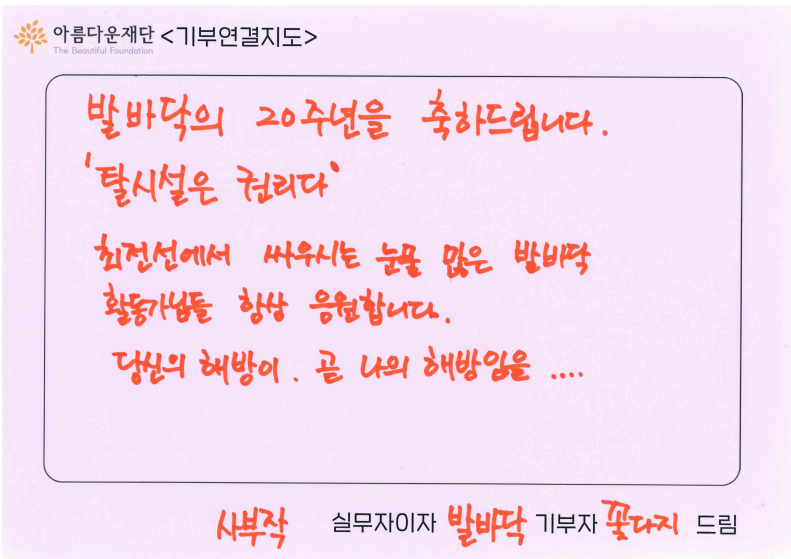 아름다운재단 <기부연결지도>
The Beautiful Foundation
발바닥의 20주년을 축하드립니다.
'탈시설은 권리다'
최전선에서 싸우시는 눈물 많은 발바닥
활동가님들 항상 응원합니다.
당신의 해방이. 곧 나의 해방임을 ....
사부작 실무자이자 발바닥 기부자 꽃다지 드림